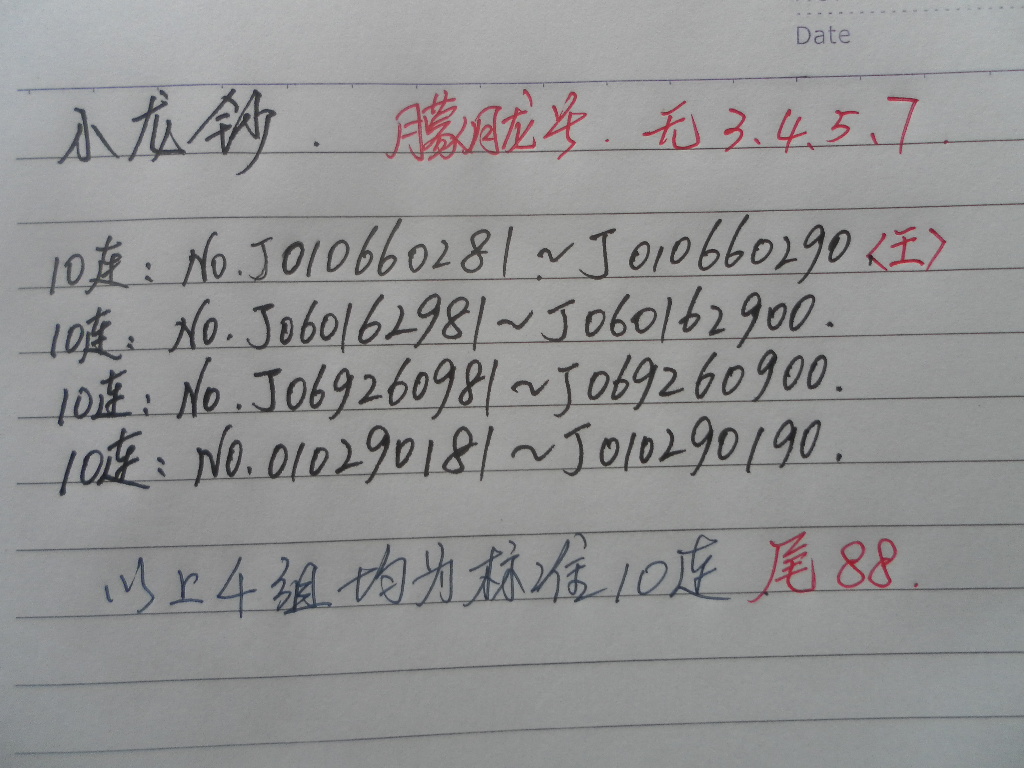 Date
小龙钞. 朦胧号. 无3、4、5、7.
10连: No.J010660281~J010660290<王>
10连: No.J060162981~J060162900.
10连: No.J069260981~J069260900.
10连: No.010290181~J010290190.
以上4组均为标准10连 尾88.